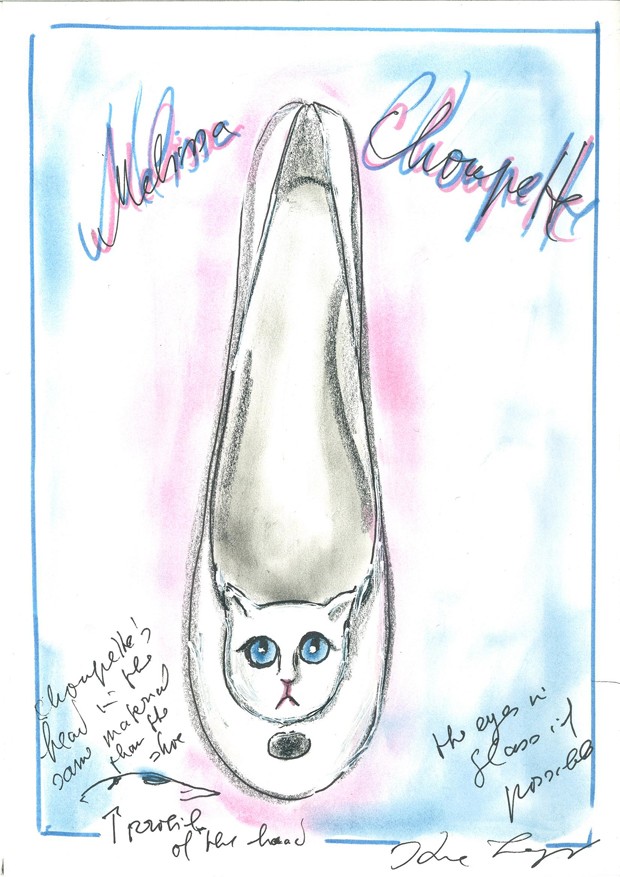 Melissa Choupette
Choupette's
head in the
same material
than the
shoe
↑ profile
of the head
the eyes in
glass if
possible